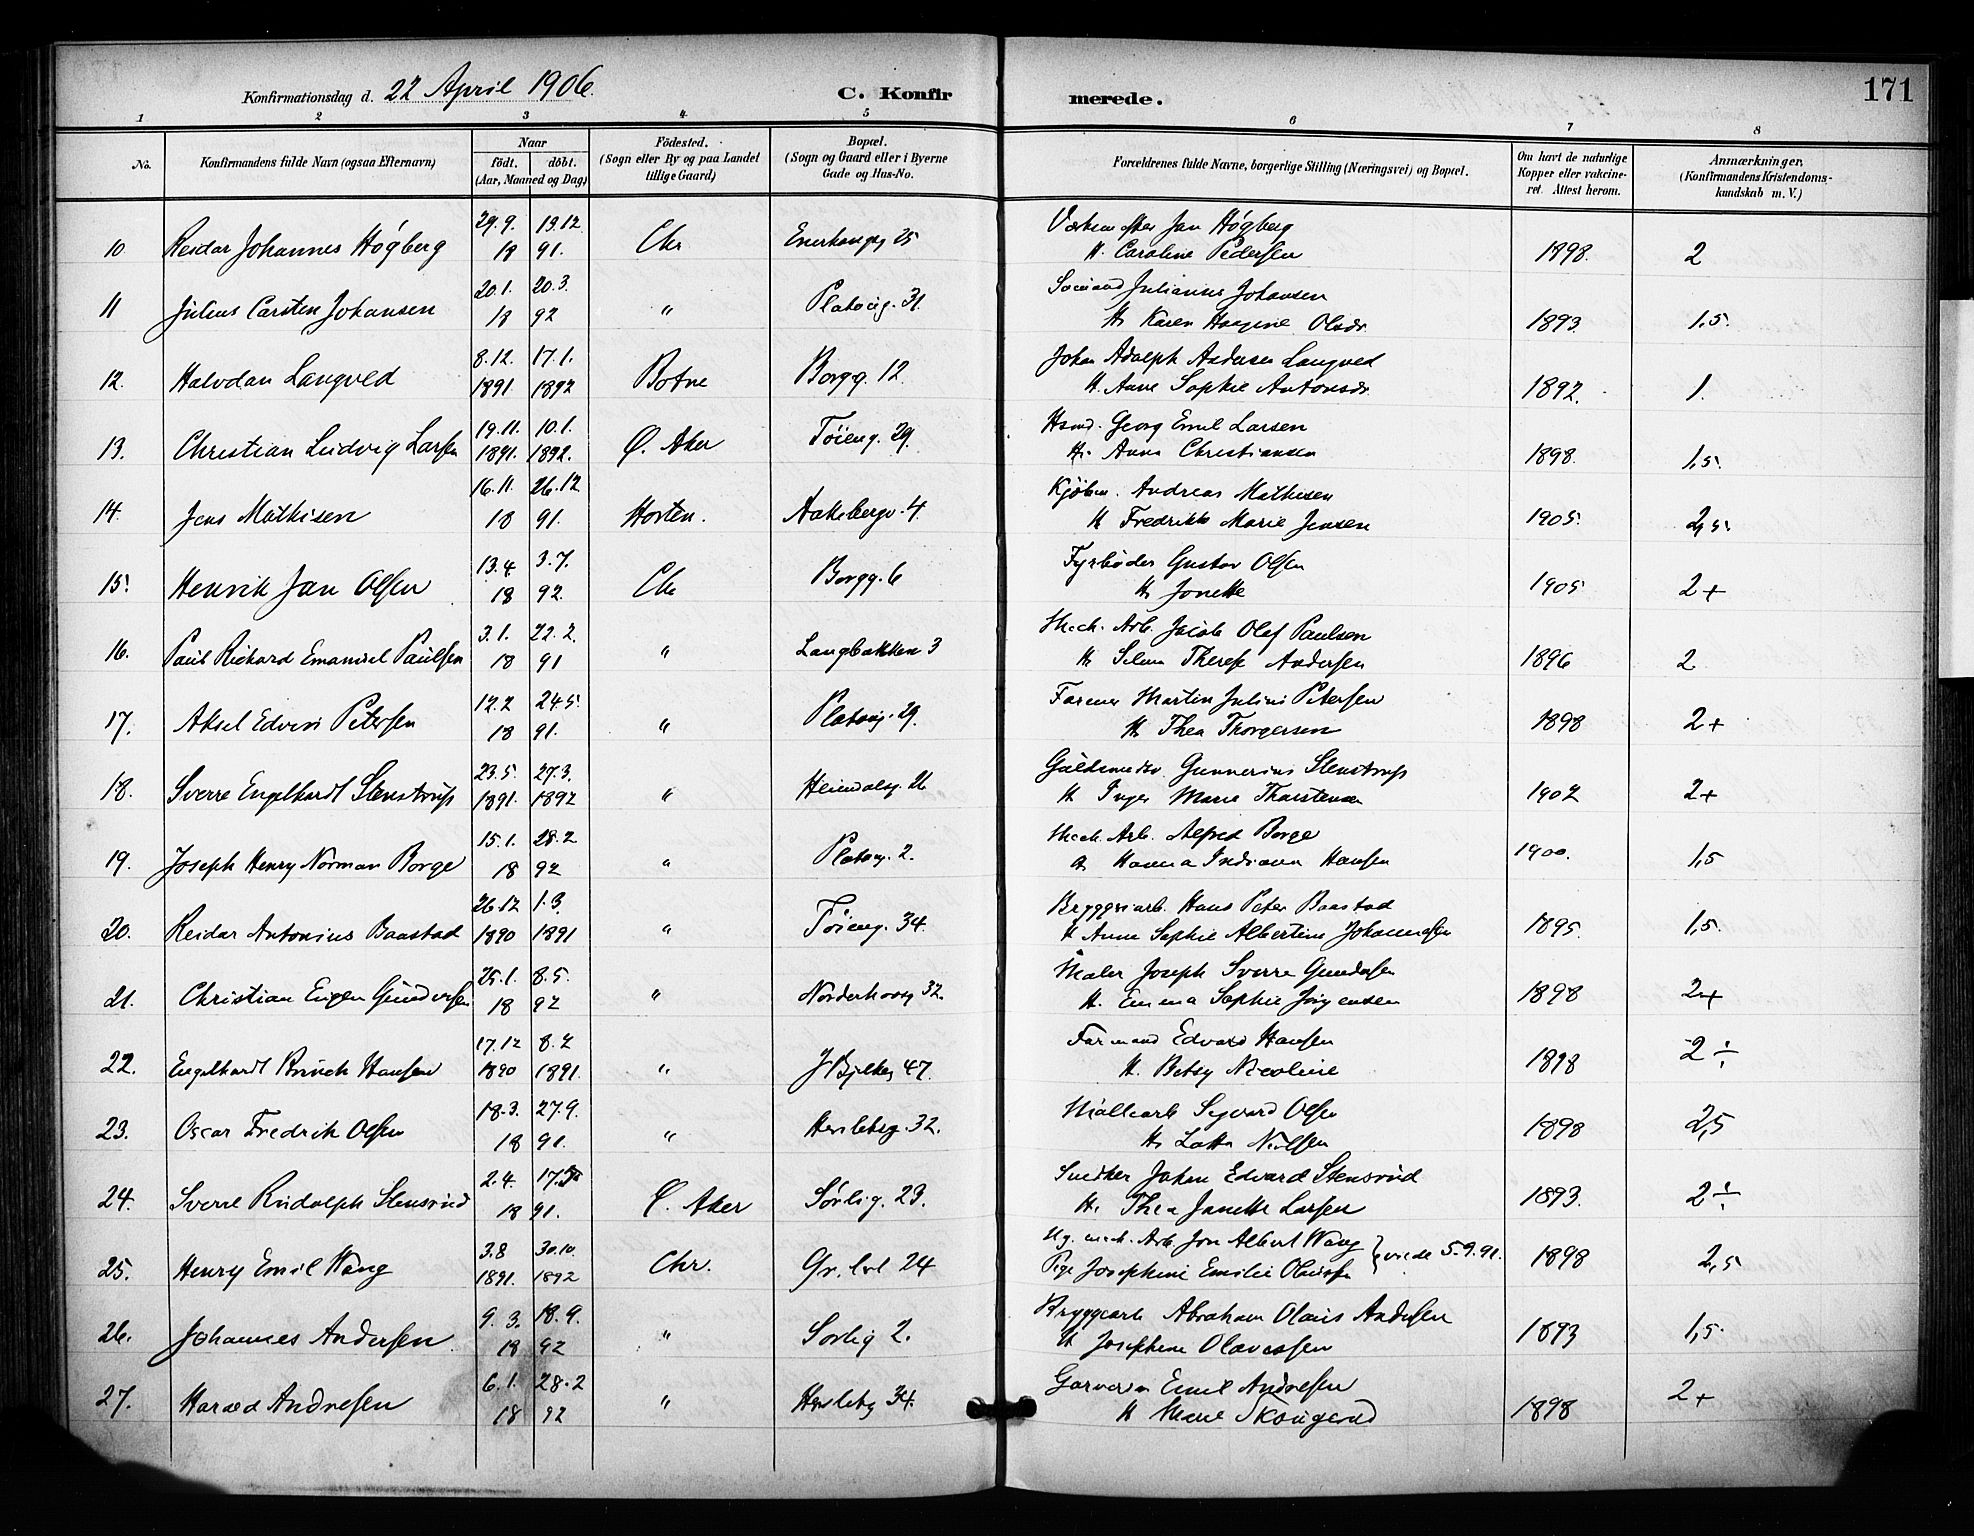 171
Konfirmationsdag d. 22 April 1906.
C. Konfirmerede.
1 2 3 4 5 6 7 8
No.
Konfirmandens fulde Navn (ogsaa Efternavn)
Naar
födt. döbt.
(Aar, Maaned og Dag)
Födested.
(Sogn eller By og paa Landet
tillige Gaard)
Bopæl.
(Sogn og Gaard eller i Byerne
Gade og Hus-No.
Forældrenes fulde Navne, borgerlige Stilling (Næringsvei) og Bopæl.
Om havt de naturlige
Kopper eller vakcine-
ret. Attest herom.
Anmærkninger.
(Konfirmandens Kristendoms-
kundskab m. V.)
29.9. 13.12. Jan Högberg
10. Reidar Johannes Högberg 18 91. Chr 25 H. Caroline Pedersen 1898. 2
20.1. 20.3. Platoug. 31. Julianus Johansen
11 Julius Carsten Johansen 18 92 " H. Karen Olsdr. 1893. 1,5.
8.12. 17.1. Johan Adolph Andersen Langved
12. Halvdan Langved 1891. 1892 Botne Borgg. 12. H. Anne Sophie Antonsdr. 1892. 1.
19.11. 10.1. Töieng. 29. Georg Emil Larsen
13. Christian Ludvig Larsen 1891. 1892. Ö. Aker H. Anna Christiansen 1898. 1,5.
16.11. 26.12 Kjöbm. Andreas Mathisen
14. Jens Mathisen 18 91. Horten. Aakebergv. 4. H Fredrikke Marie Jensen 1905. 2,5.
13.4 3.7. Fyrböder Gustav Olsen
15. Henrik Jan Olsen 18 92. Chr Borgg. 6 H. Jonette 1905 2+
3.1. 22.2. Mech. Arb. Jacob Olaf Paulsen
16. Paul Richard Emanuel Paulsen 18 91 " Langbakken 3 H Therese Andersen 1896 2
12.2 24.5. Martin Julius Petersen
17. Aksel Edvin Petersen 18 91. " Platoug. 29. H. Thea Thorgersen 1898 2+
23.5. 27.3. Guldsmedsv. Gunnerius Stenstrup
18. Sverre Engelhardt Stenstrup 1891. 1892 " Heimdalsg. 26 H Inger Marie Thorstensen 1902 2+
15.1. 28.2 Mech. Arb. Alfred Borge
19. Joseph Henry Norman Borge 18 92 " Platoug. 2. H. Hanna Indiana Hansen 1900. 1,5
26.12 1.3. Bryggeriarb. Hans Peter Baastad
20. Reidar Antonius Baastad 1890 1891 " Töieng. 34. H Anne Sophie Albertine Johannesen 1895. 1,5.
25.1. 8.5. Maler Joseph Sverre Gundersen
21. Christian Eugen Gundersen 18 92 " Norderhovsg 32. H. Emma Sophie Jörgensen 1898 2+
17.12 8.2 Formand Edvard Hansen
22. Engelhardt Brinch Hansen 1890 1891. " J Bjelkeg 47. H. Betsy Nicoline 1898 2÷
18.3. 27.9. Olsen
23. Oscar Fredrik Olsen 18 91. " Herslebsg. 32. H. Lotta Nielsen 1898 2,5
2.4. Snedker Johan Edvard Stensrud
24. Sverre Rudolph Stensrud 18 91. Ö. Aker Sörlig. 23. H. Thea Janette Larsen 1893. 2÷
3.8 30.10. Ug. mech. Arb. Jon Albert Wang
25. Henry Emil Wang 1891. 1892 Chr. Gr. lvl 24 Pige Josephine Emilie Olaussen } viede 5.9.91. 1898 2,5
9.3. 18.9. Bryggearb Abraham Olaus Andersen
26. Johannes Andersen. 18 92 " Sörlig 2. H Josephine Olavessen 1893 1,5.
6.1. 28.2 Garversv. Emil Andresen
27. Harald Andresen 18 92 " Herslebg 34. H Marie Skougerud 1898 2+